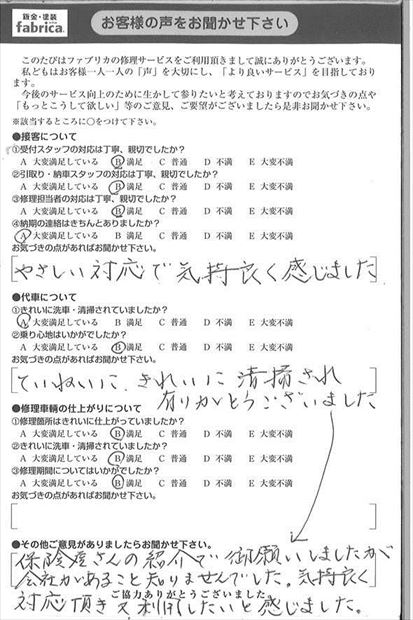 鈑金・塗装
fabrica.
お客様の声をお聞かせ下さい
このたびはファブリカの修理サービスをご利用頂きまして誠にありがとうございます。
私どもはお客様一人一人の「声」を大切にし、「より良いサービス」を目指しております。
今後のサービス向上のために生かして参りたいと考えておりますのでお気づきの点や
「もっとこうして欲しい」等のご意見、ご要望がございましたら是非お聞かせ下さい。
※該当するところに○をつけて下さい。
●接客について
①受付スタッフの対応は丁寧、親切でしたか？
A 大変満足している B 満足 C 普通 D 不満 E 大変不満
②引取り・納車スタッフの対応は丁寧、親切でしたか？
A 大変満足している B 満足 C 普通 D 不満 E 大変不満
③修理担当者の対応は丁寧、親切でしたか？
A 大変満足している B 満足 C 普通 D 不満 E 大変不満
④納期の連絡はきちんとありましたか？
A 大変満足している B 満足 C 普通 D 不満 E 大変不満
お気づきの点があればお聞かせ下さい。
やさしい対応で気持良く感じました
●代車について
①きれいに洗車・清掃されていましたか？
A 大変満足している B 満足 C 普通 D 不満 E 大変不満
②乗り心地はいかがでしたか？
A 大変満足している B 満足 C 普通 D 不満 E 大変不満
お気づきの点があればお聞かせ下さい。
ていねいに、きれいに清掃され
有りがとうございました
●修理車輌の仕上がりについて
①修理箇所はきれいに仕上がっていましたか？
A 大変満足している B 満足 C 普通 D 不満 E 大変不満
②きれいに洗車・清掃されていましたか？
A 大変満足している B 満足 C 普通 D 不満 E 大変不満
③修理期間についてはいかがでしたか？
A 大変満足している B 満足 C 普通 D 不満 E 大変不満
お気づきの点があればお聞かせ下さい。
●その他ご意見がありましたらお聞かせ下さい。
保険屋さんの紹介で御願いしましたが
会社があること知りませんでした。気持良く
対応頂き又利用したいと感じました。
ご協力ありがとうございました